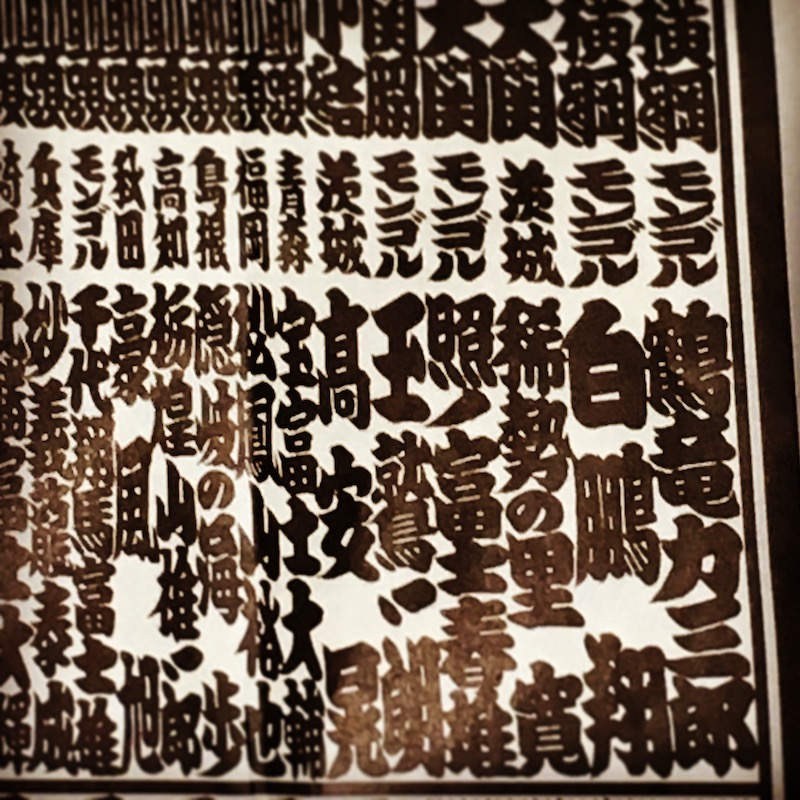 横綱 モンゴル 鶴竜力三郎
横綱 モンゴル 白鵬 翔
大関 茨城 稀勢の里 寛
大関 モンゴル 照ノ富士春雄
関脇 モンゴル 玉鷲一朗
小結 茨城 高安 晃
前頭 青森 宝富士大輔
前頭 福岡 松鳳山裕也
前頭 島根 隠岐の海 歩
前頭 高知 栃煌山雄一郎
前頭 秋田 豪風 旭
前頭 モンゴル 千代翔馬富士雄
前頭 兵庫 妙義龍泰成
埼玉 北勝富士大輝